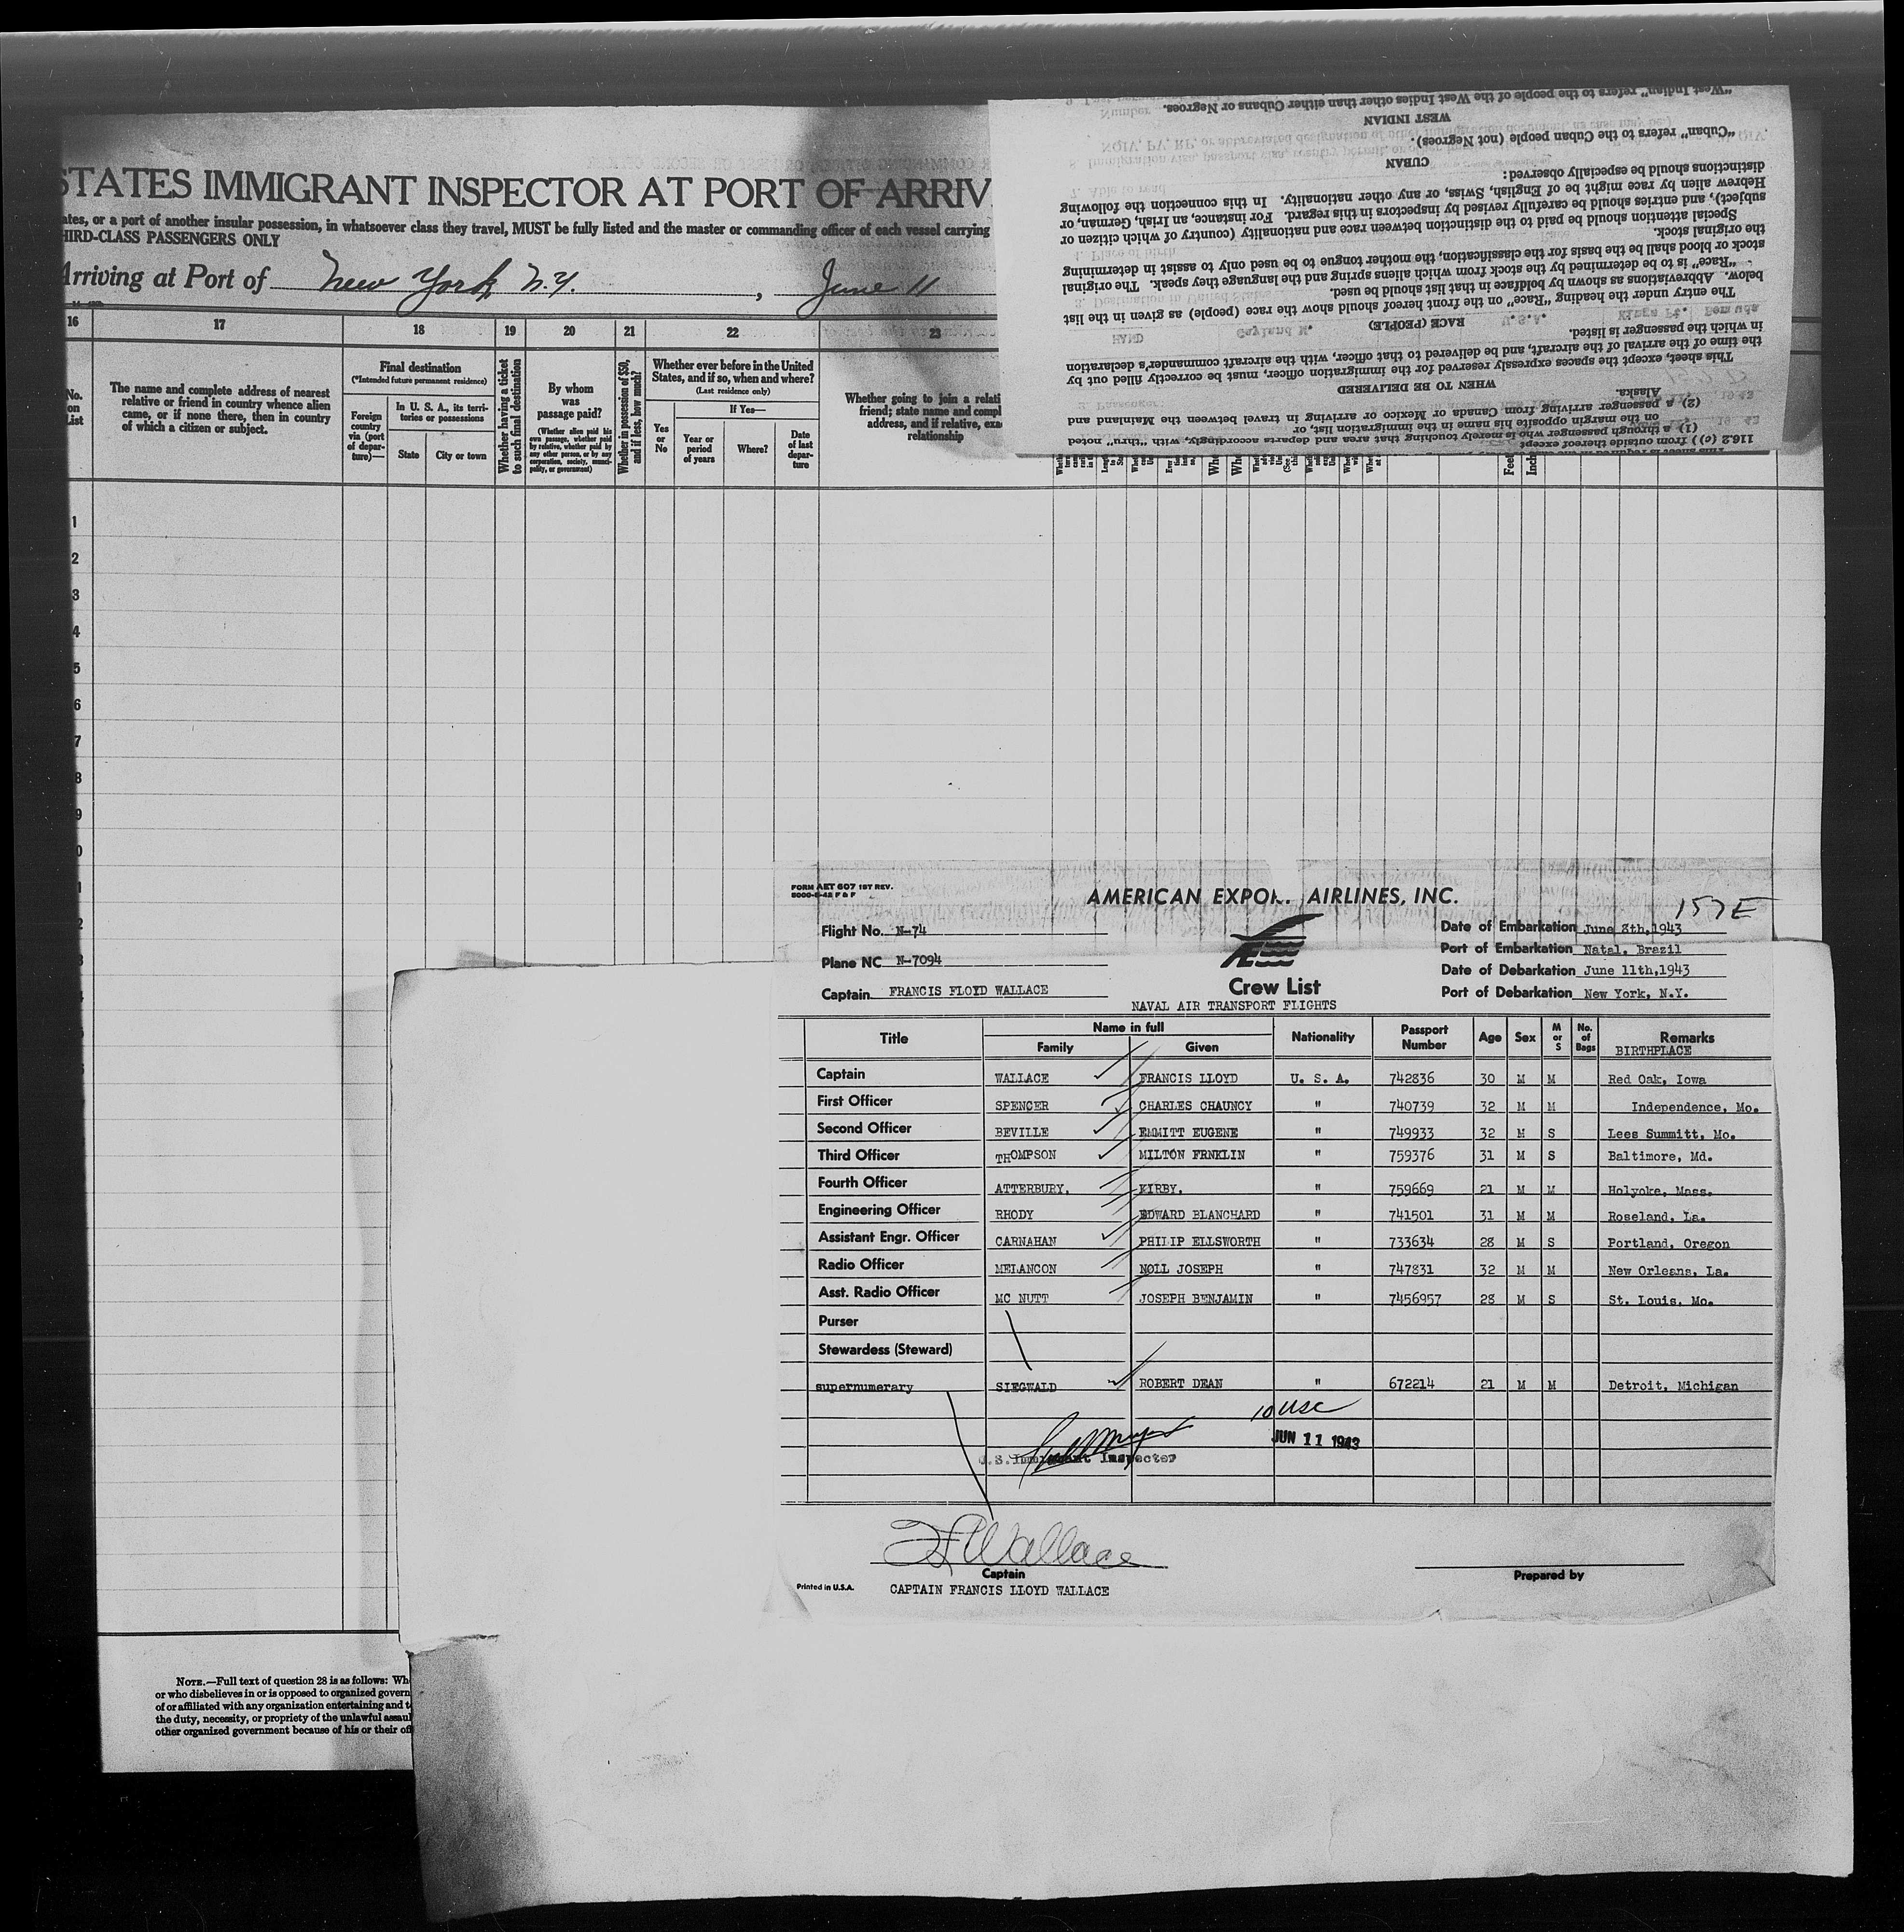 STATES IMMIGRANT INSPECTOR AT PORT OF ARRIV
ates, or a port of another insular possession, in whatsoever class they travel, MUST be fully listed and the master or commanding officer of each vessel carrying
HIRD-CLASS PASSENGERS ONLY
Arriving at Port of New York N.Y. , June 11
16 17 18 19 20 21 22 23
No. on List
The name and complete address of nearest
relative or friend in country whence alien
came, or if none there, then in country
of which a citizen or subject.
Final destination
(*Intended future permanent residence)
Foreign country via (port of departure)—
In U. S. A., its territories or possessions
State
City or town
Whether having ticket to such final destination
By whom was passage paid?
(Whether alien paid his own passage, whether paid by relative, whether paid by any other person, or by any corporation, society, municipality, or government)
Whether in possession of $50, and if less, how much?
Whether ever before in the United
States, and if so, when and where?
(Last residence only)
Yes or No
If Yes—
Year or period of years
Where?
Date of last departure
Whether going to join a relati
friend; state name and compl
address, and if relative, exa
relationship
Feet
Inch
1
2
3
4
5
6
7
8
9
0
1
2
3
"West Indian" refers to the people of the West Indies other than either Cubans or Negroes.
WEST INDIAN
"Cuban" refers to the Cuban people (not Negroes).
CUBAN
distinctions should be especially observed:
Hebrew alien by race might be of English, Swiss, or any other nationality. In this connection the following
subject), and entries should be carefully revised by inspectors in this regard. For instance, an Irish, German, or
Special attention should be paid to the distinction between race and nationality (country of which citizen or
the original stock.
stock or blood shall be the basis for the classification, the mother tongue to be used only to assist in determining
"Race" is to be determined by the stock from which aliens spring and the language they speak. The original
below. Abbreviations as shown by boldface in that list should be used.
The entry under the heading "Race" on the front hereof should show the race (people) as given in the list
RACE (PEOPLE)
in which the passenger is listed.
the time of the arrival of the aircraft, and be delivered to that officer, with the aircraft commander's declaration
This sheet, except the spaces expressly reserved for the immigration officer, must be correctly filled out by
WHEN TO BE DELIVERED
Alaska.
(2) a passenger arriving from Canada or Mexico or arriving in travel between the Mainland and
on the margin opposite his name in the immigration list, or
(1) a through passenger who is merely touching that area and departs accordingly, with "thru" noted
116.2 (c)) from outside thereof except
FORM AET 607 1ST REV.
AMERICAN EXPOR. AIRLINES, INC.
157E
Flight No. N-74
Plane NC N-7094
Captain FRANCIS FLOYD WALLACE
AE
Crew List
NAVAL AIR TRANSPORT FLIGHTS
Date of Embarkation June 8th,1943
Port of Embarkation Natal, Brazil
Date of Debarkation June 11th,1943
Port of Debarkation New York, N.Y.
Title Name in full Nationality Passport Number Age Sex M or S No. of Bags Remarks
Family Given BIRTHPLACE
Captain WALLACE FRANCIS LLOYD U. S. A. 742836 30 M M Red Oak, Iowa
First Officer SPENCER CHARLES CHAUNCY " 740739 32 M M Independence, Mo.
Second Officer BEVILLE EMMITT EUGENE " 749933 32 M S Lees Summitt, Mo.
Third Officer THOMPSON MILTON FRNKLIN " 759376 31 M S Baltimore, Md.
Fourth Officer ATTERBURY, KIRBY. " 759669 21 M M Holyoke, Mass.
Engineering Officer RHODY EDWARD BLANCHARD " 741501 31 M M Roseland, La.
Assistant Engr. Officer CARNAHAN PHILIP ELLSWORTH " 733634 28 M S Portland, Oregon
Radio Officer MELANCON NOLL JOSEPH " 747831 32 M M New Orleans, La.
Asst. Radio Officer MC NUTT JOSEPH BENJAMIN " 7456957 28 M S St. Louis, Mo.
Purser
Stewardess (Steward)
supernumerary SIEGWALD ROBERT DEAN " 672214 21 M M Detroit, Michigan
10 USC
JUN 11 1943
U.S. Immigrant Inspector
F L Wallace
Captain
Prepared by
Printed in U.S.A.
CAPTAIN FRANCIS LLOYD WALLACE
NOTE.—Full text of question 28 is as follows: Wh
or who disbelieves in or is opposed to organized govern
of or affiliated with any organization entertaining and t
the duty, necessity, or propriety of the unlawful assaul
other organized government because of his or their off